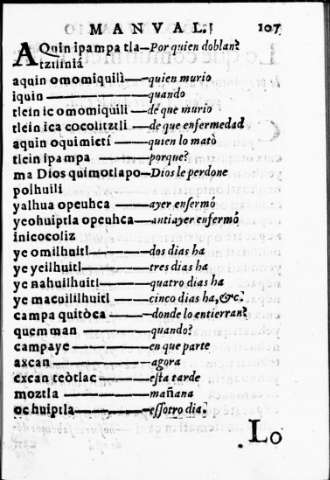 MANVAL. 107
AQuin ipampa tla—Por quien doblan?
tziliniá
aquin omomiquili—quien murio
iquin—quando
tlein ic omomiquili—de que murio
tlein ica cocolitztli—de que enfermedad
aquin oquimictí—quien lo matò
tlein ipampa—porque?
ma Dios quimotlapo—Dios le perdone
polhuili
yalhua opeuhca—ayer enfermó
yeohuiptla opeuhca—antiayer enfermó
inicocoliz
ye omilhuitl—dos dias ha
ye yeilhuitl—tres dias ha
ye nahuilhuitl—quatro dias ha
ye macuililhuitl—cinco dias ha,&c.
campa quitòca—donde lo entierran?
quemman—quando?
campaye—en que parte
axcan—agora
cxcan teòtlac—esta tarde
moztla—mañana
oc huiptla—essotro dia.
Lo